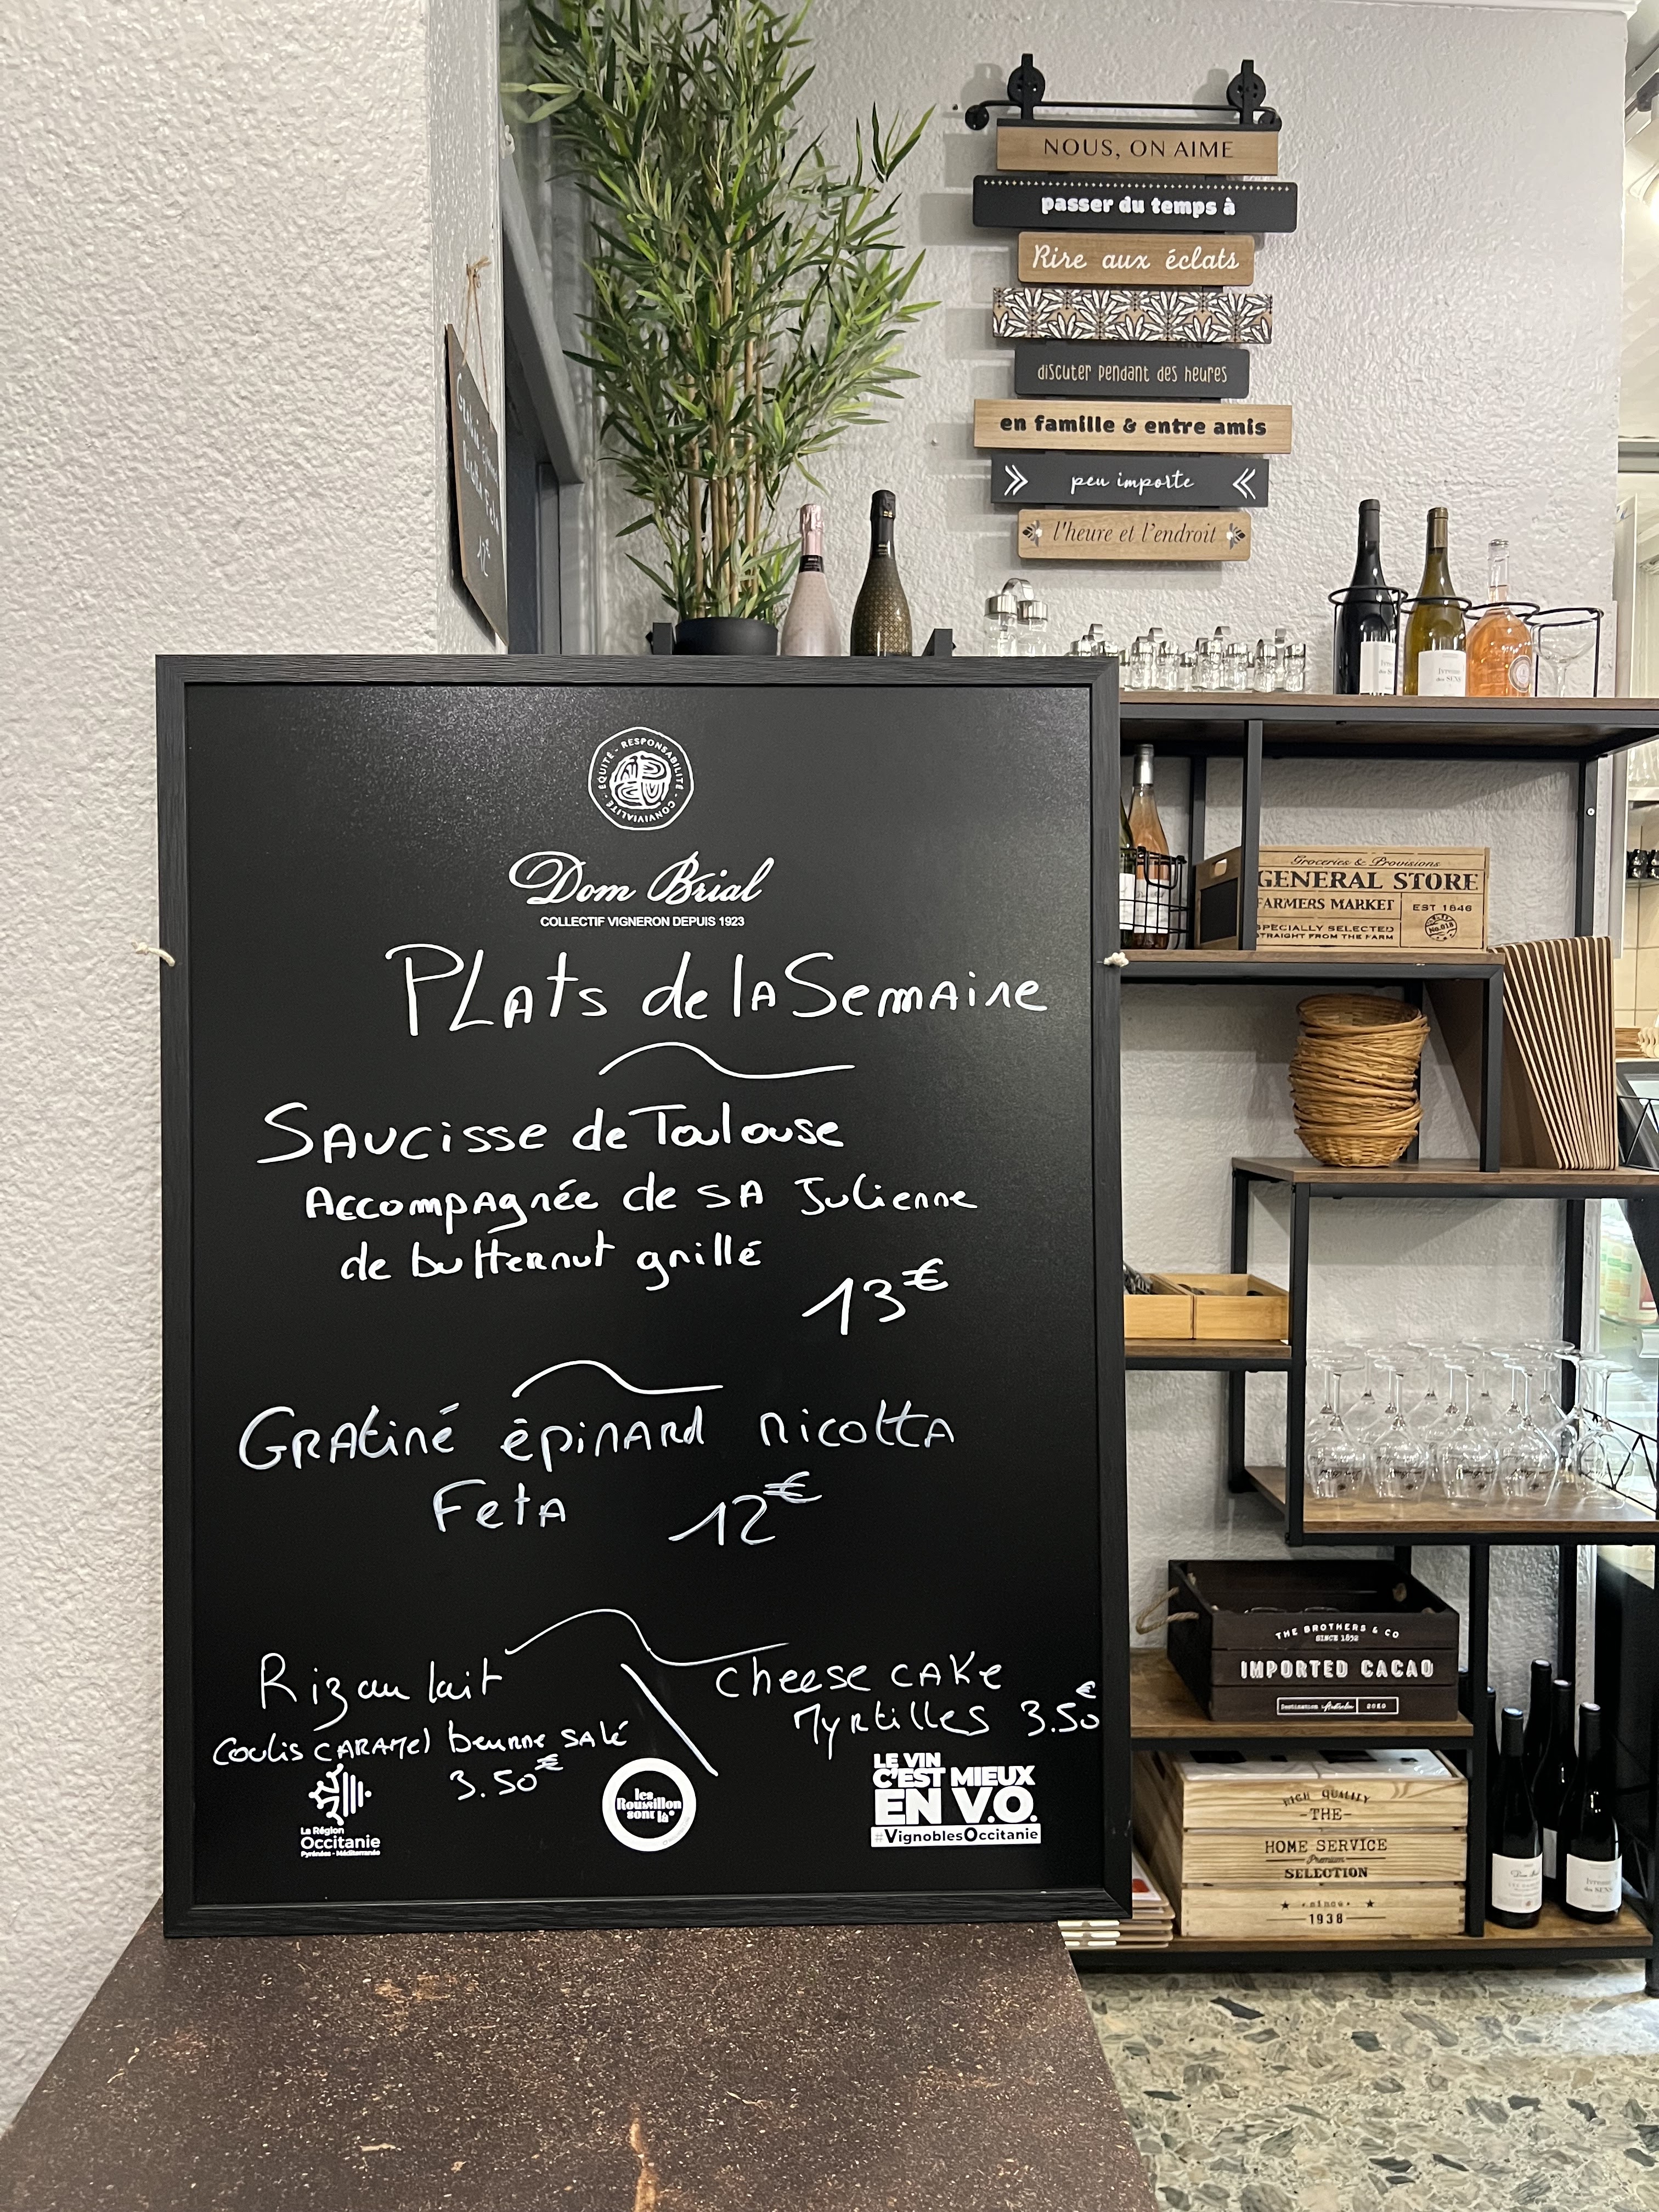 NOUS, ON AIME
passer du temps à
Rire aux éclats
discuter pendant des heures
en famille & entre amis
peu importe
l'heure et l'endroit
12€
ÉQUITÉ - RESPONSABILITÉ - CONVIVIALITÉ -
Dom Brial
COLLECTIF VIGNERON DEPUIS 1923
PLAts de lA SemAine
SAUCisse de Toulouse
AccompAgnée de SA Julienne
de butternut grillé
13€
GRAtiné épinARd RicottA
FetA 12€
Riz au lait
Coulis CARAMel beurre salé
3.50€
cheese CAKe
MyRtilles 3.50€
La Région
Occitanie
Pyrénées - Méditerranée
les
Roussillon
sont là
LE VIN
C'EST MIEUX
EN V.O.
#VignoblesOccitanie
Groceries & Provisions
GENERAL STORE
FARMERS MARKET
EST 1846
SPECIALLY SELECTED
STRAIGHT FROM THE FARM
No.018
THE BROTHERS & CO
SINCE 1852
IMPORTED CACAO
Destination
HIGH QUALITY
-THE-
HOME SERVICE
Premium
SELECTION
★ since ★
1938